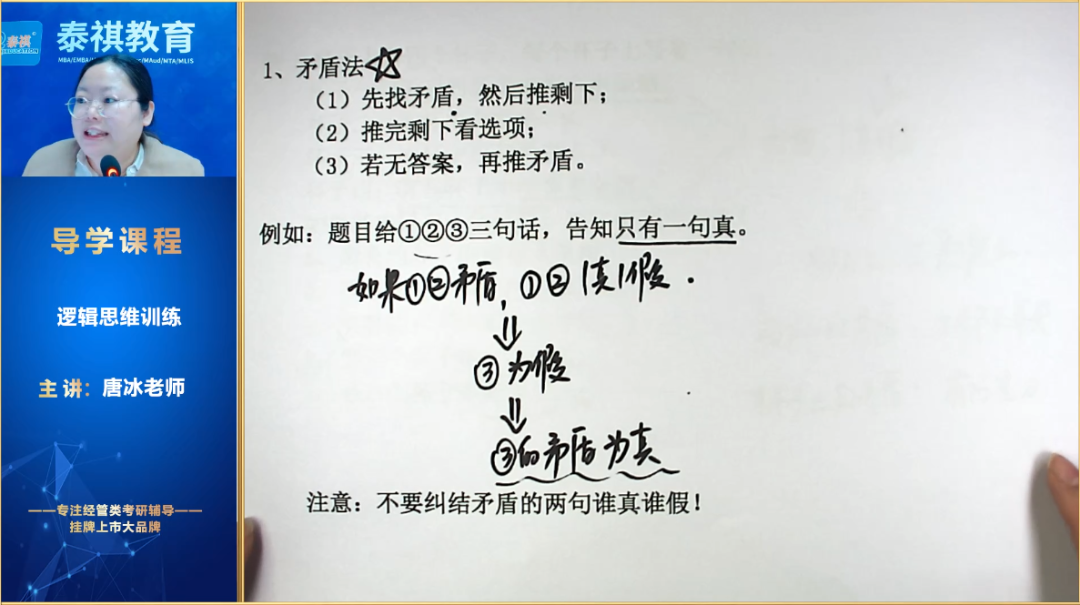 泰祺
EDUCATION
泰祺教育
导学课程
逻辑思维训练
主讲：唐冰老师
——专注经管类考研辅导——
挂牌上市大品牌
1、矛盾法☆
（1）先找矛盾，然后推剩下；
（2）推完剩下看选项；
（3）若无答案，再推矛盾。
例如：题目给①②③三句话，告知只有一句真。
如果①②矛盾，①②1真1假．
⇓
③为假
⇓
③的矛盾为真
注意：不要纠结矛盾的两句谁真谁假！